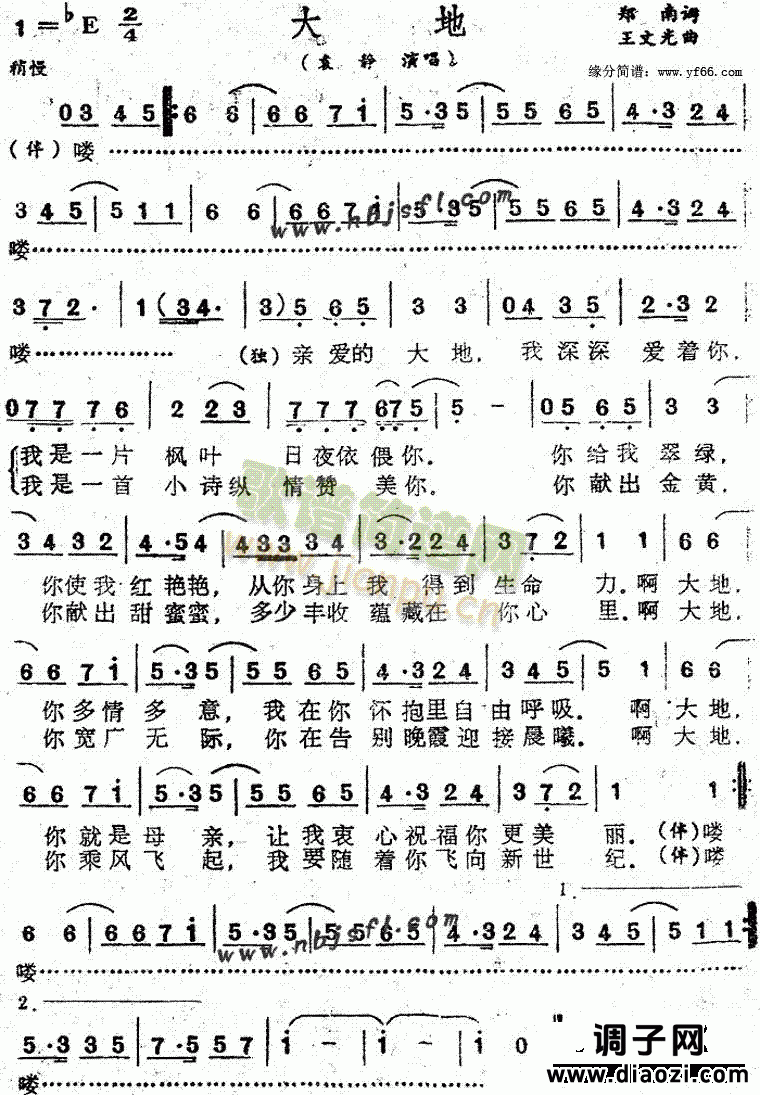 1=♭E 2/4
大地
郑南词
王文光曲
(袁静 演唱)
稍慢
缘分简谱：www.yf66.com
03 45 6 6 66 7i 5·35 55 65 4·3 24
(伴)喽
3 45 5 11 6 6 66 7i 5 35 55 65 4·3 24
www.nbjsfl.com
喽
3 72· 1(34· 3)5 65 3 3 04 35 2·3 2
喽 (独)亲爱的 大地，我深深 爱着你，
077 76 2 23 777 675 5 - 05 65 3 3
我是一片 枫叶 日夜依偎你． 你给我 翠绿，
我是一首 小诗纵 情赞 美你． 你献出 金黄，
歌谱简谱网
34 32 4·54 433 34 3·2 24 372 1 1 66
www.jianpu.cn
你使我 红艳艳，从你身上我 得到 生命 力．啊大地，
你献出 甜蜜蜜，多少丰收 蕴藏在 你心 里．啊大地，
66 7i 5·35 55 65 4·3 24 345 5 1 66
你多情多 意，我在你 怀抱里自由呼吸． 啊大地，
你宽广无 际，你在告 别晚霞迎接晨曦． 啊大地，
66 7i 5·35 55 65 4·3 24 372 1 1
你就是母 亲，让我衷 心祝福你更美 丽．(伴)喽
你乘风飞 起，我要随 着你飞向新世 纪．(伴)喽
1.
6 6 66 7i 5·35 55 65 4·3 24 345 5 11
www.nbjsfl.com
喽
2.
5·3 35 7·5 57 i - i - i 0
喽
调子网
www.diaozi.com